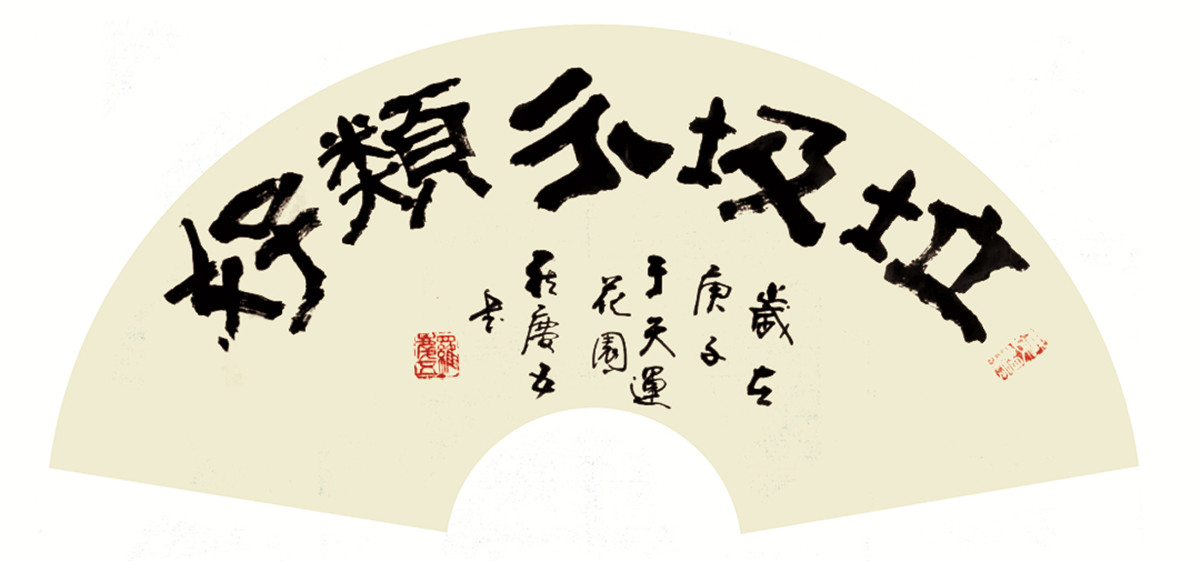 垃圾分類好
歲在
庚子
于天運
花園
慶
书